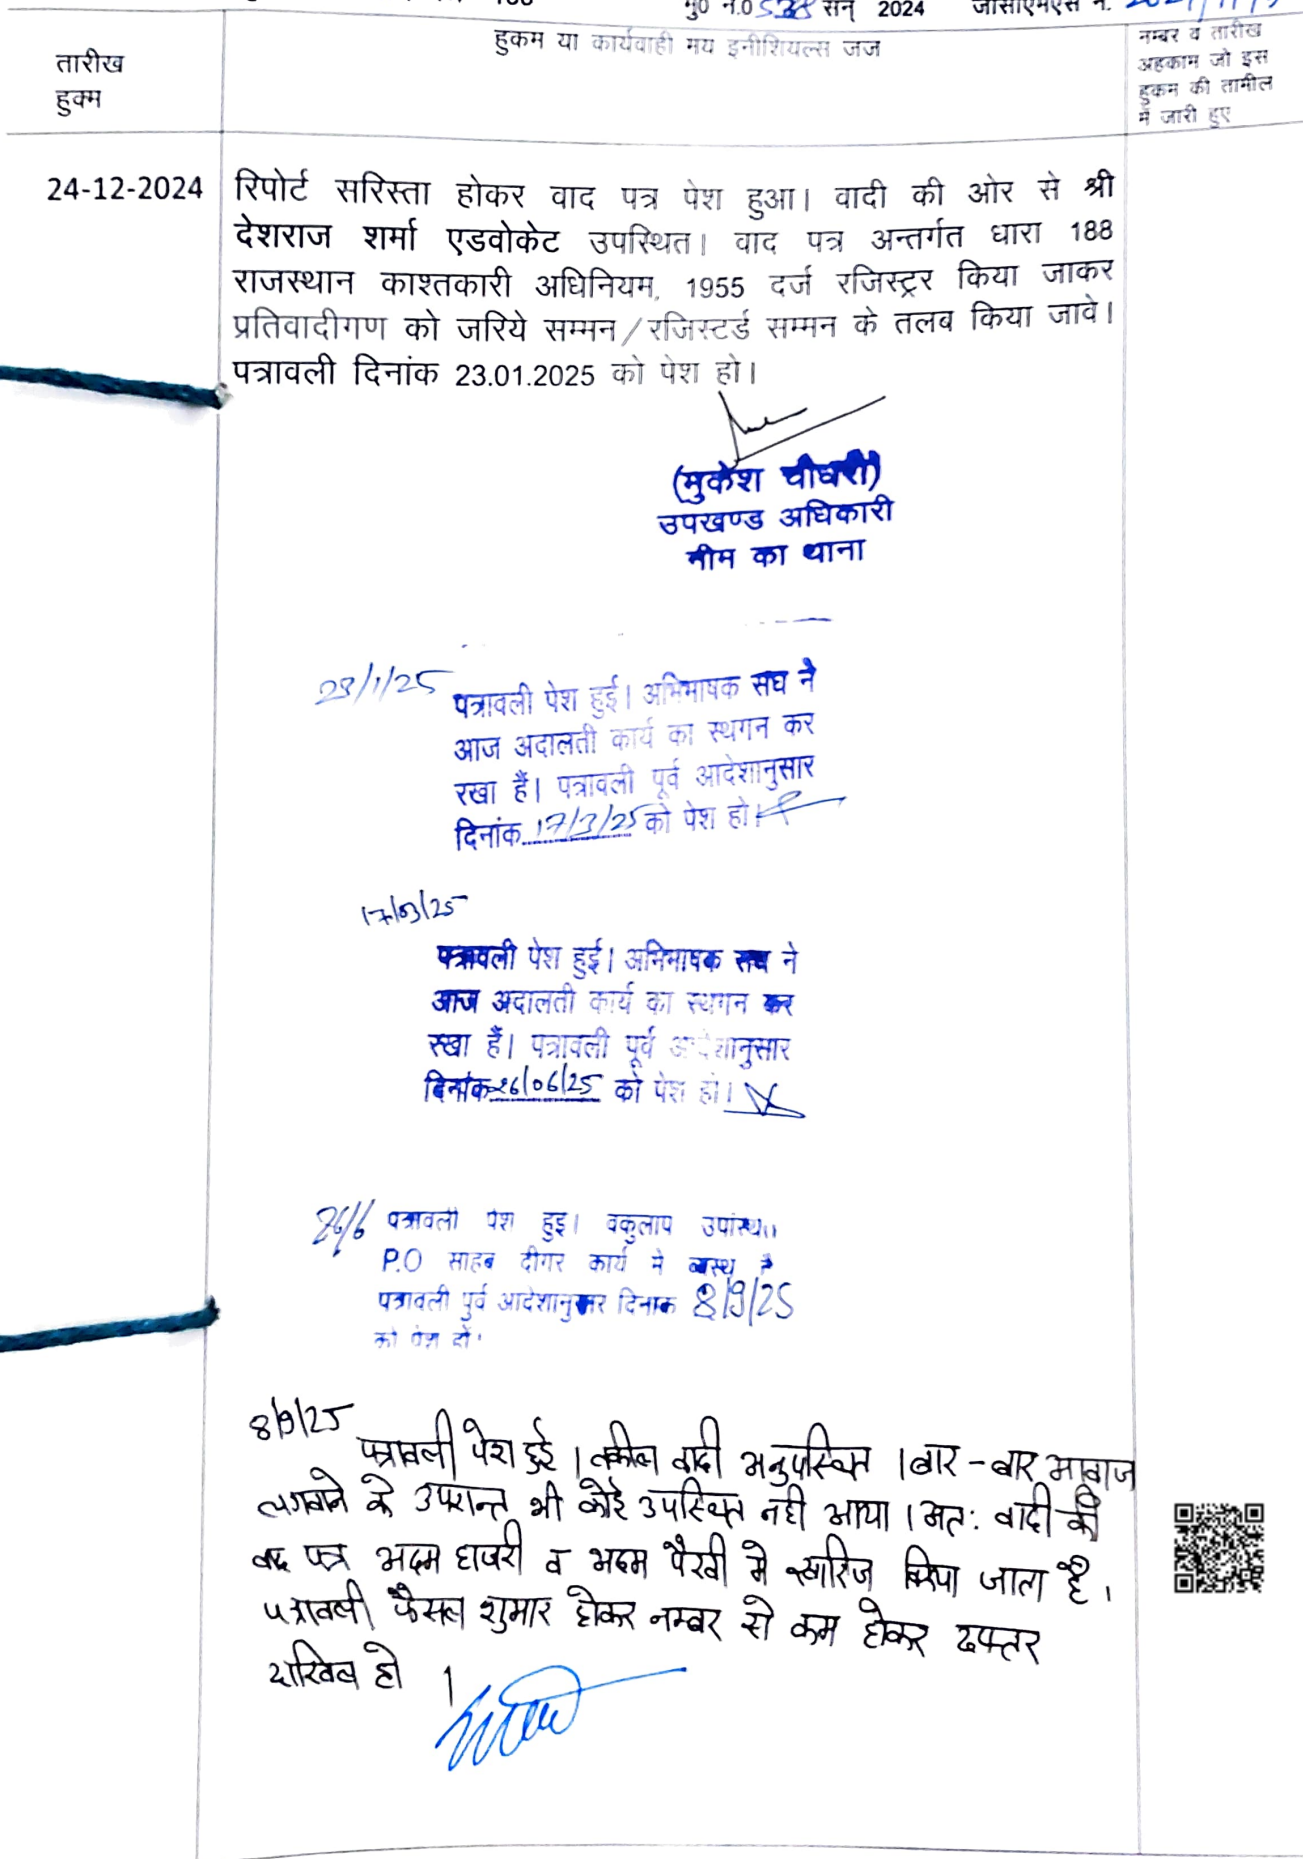 मु0 न.0 538 सन् 2024
तारीख
हुक्म
हुकम या कार्यवाही मय इनीशियल्स जज
नम्बर व तारीख
अहकाम जो इस
हुकम की तामील
में जारी हुए
24-12-2024
रिपोर्ट सरिस्ता होकर वाद पत्र पेश हुआ। वादी की ओर से श्री
देशराज शर्मा एडवोकेट उपस्थित। वाद पत्र अन्तर्गत धारा 188
राजस्थान काश्तकारी अधिनियम, 1955 दर्ज रजिस्ट्रर किया जाकर
प्रतिवादीगण को जरिये सम्मन/रजिस्टर्ड सम्मन के तलब किया जावे।
पत्रावली दिनांक 23.01.2025 को पेश हो।
(मुकेश चौधरी)
उपखण्ड अधिकारी
नीम का थाना
23/1/25
पत्रावली पेश हुई। अभिभाषक सघ ने
आज अदालती कार्य का स्थगन कर
रखा हैं। पत्रावली पूर्व आदेशानुसार
दिनांक 17/3/25 को पेश हो।
17/03/25
पत्रावली पेश हुई। अभिभाषक सघ ने
आज अदालती कार्य का स्थगन कर
रखा हैं। पत्रावली पूर्व आदेशानुसार
दिनांक 26/06/25 को पेश हो।
26/6 पत्रावली पेश हुइ। वकुलाप
P.O साहब दीगर कार्य मे व्यस्थ है
पत्रावली पुर्व आदेशानुसार दिनाक 8/9/25
को पेश हो।
8/9/25
पत्रावली पेश हुई। वकील वादी अनुपस्थित। बार-बार आवाज
लगवाने के उपरान्त भी कोई उपस्थित नही आया। अत: वादी की
वाद पत्र अदम हाजरी व अदम पैरवी मे खारिज किया जाता है।
पत्रावली फैसल शुमार होकर नम्बर से कम होकर दफ्तर
दाखिल हो।